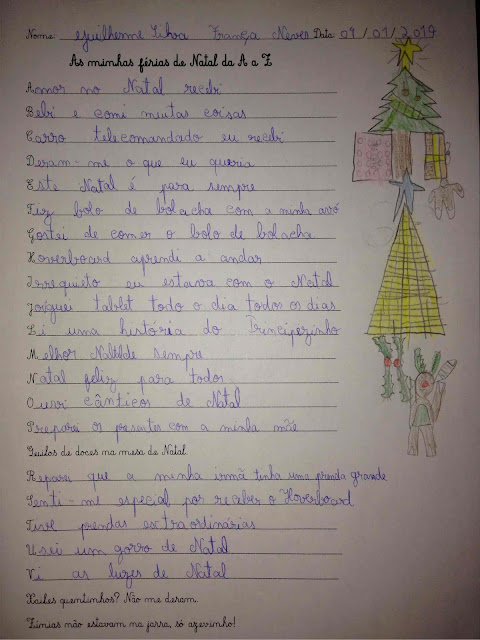 Nome: Guilherme Silva França Neves Data: 09/01/2019
As minhas férias de Natal da A a Z
Amor no Natal recebi
Bebi e comi muitas coisas
Carro telecomandado eu recebi
Deram-me o que eu queria
Este Natal é para sempre
Fiz bolo de bolacha com a minha avó
Gostei de comer o bolo de bolacha
Hoverboard aprendi a andar
Irrequieto eu estava com o Natal
Joguei tablet todo o dia todos os dias
Li uma história do Principezinho
Melhor Natal de sempre
Natal feliz para todos
Ouvi cânticos de Natal
Preparei os presentes com a minha mãe
Quilos de doces na mesa de Natal
Reparei que a minha irmã tinha uma prenda grande
Senti-me especial por receber o Hoverboard
Tive prendas extraordinárias
Usei um gorro de Natal
Vi as luzes de Natal
Xailes quentinhos? Não me deram.
Zínias não estavam na jarra, só azevinho!